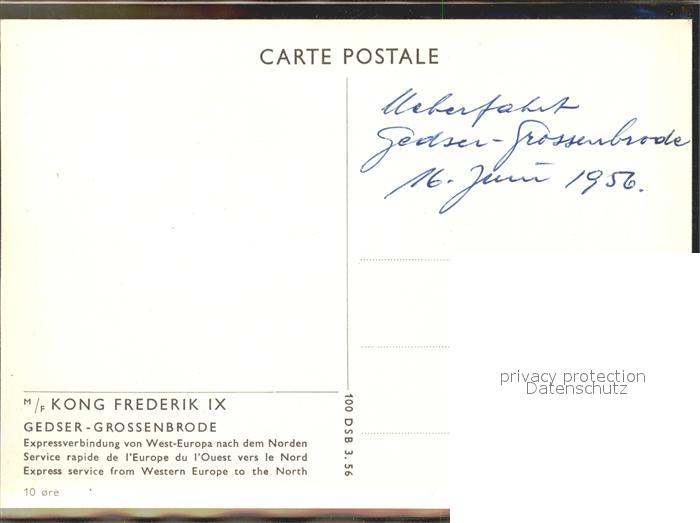 CARTE POSTALE
Ueberfahrt
Gedser-Grossenbrode
16. Juni 1956.
privacy protection
Datenschutz
M/F KONG FREDERIK IX
GEDSER-GROSSENBRODE
Expressverbindung von West-Europa nach dem Norden
Service rapide de l'Europe du l'Ouest vers le Nord
Express service from Western Europe to the North
10 øre
100 DSB 3. 56